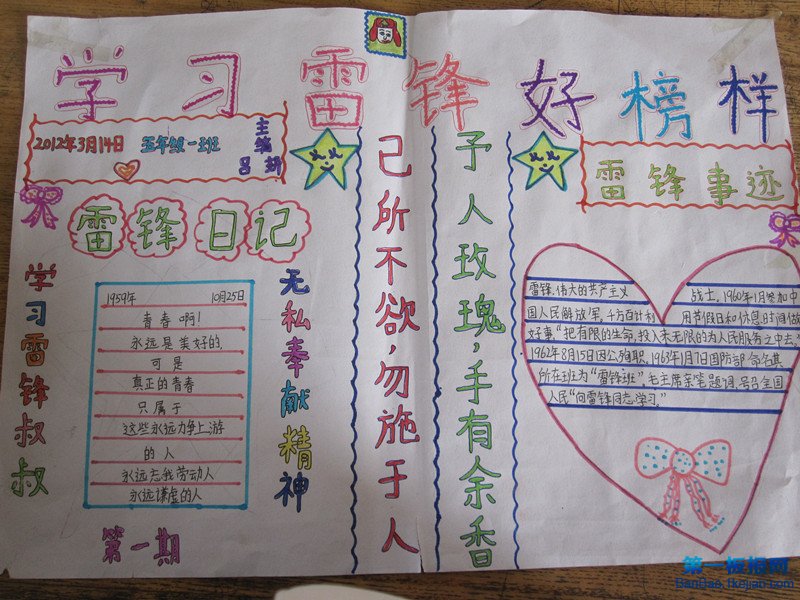 学习雷锋好榜样
2012年3月14日 五年级一班
主编
吕新
雷锋日记
学习雷锋叔叔
1959年 10月25日
青春啊!
永远是美好的,
可是
真正的青春
只属于
这些永远力争上游
的人
永远忘我劳动人
永远谦虚的人
无私奉献精神
第一期
己所不欲,勿施于人
予人玫瑰,手有余香
雷锋事迹
雷锋,伟大的共产主义 战士,1960年1月参加中
国人民解放军,千方百计利 用节假日和休息时间做
好事"把有限的生命,投入未无限的为人民服务之中去."
1962年8月15日因公殉职,1963年1月7日国防部命名其
所在班为"雷锋班".毛主席亲笔题词,号召全国
人民"向雷锋同志学习."
第一板报网
BanBao.1kejian.com